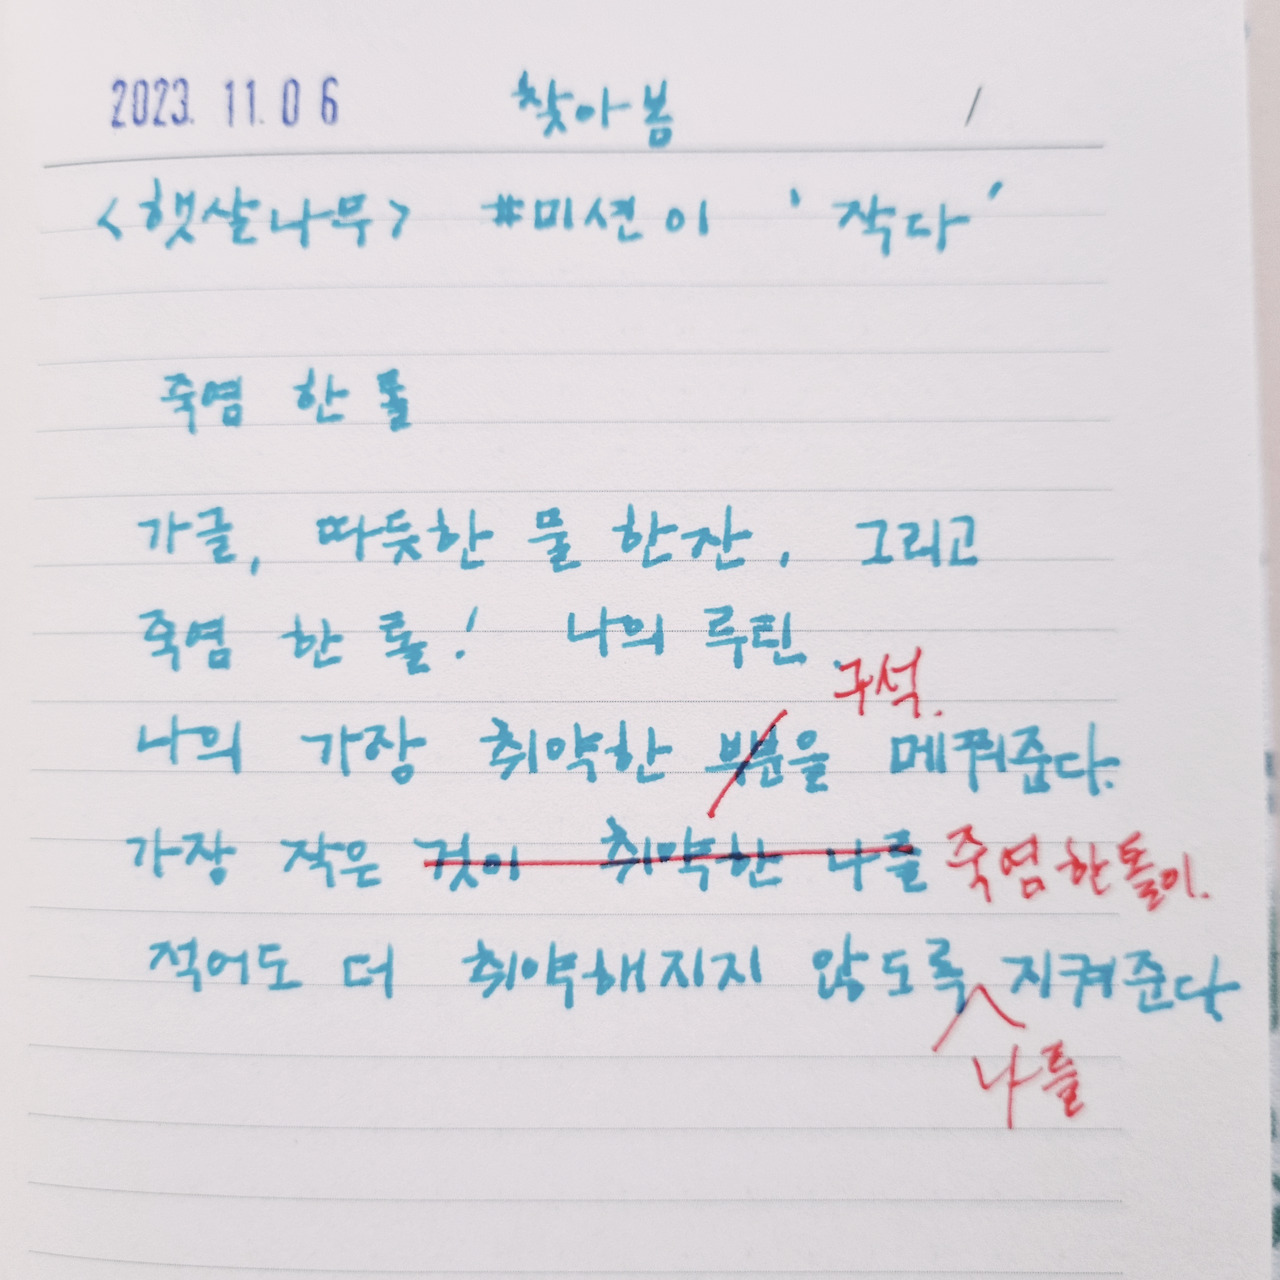 2023. 11. 06 찾아봄 /
<햇살나무> #미션이 '작다'
죽염 한 톨
가글, 따듯한 물 한잔, 그리고
죽염 한 톨! 나의 루틴
구석.
나의 가장 취약한 부분을 메꿔준다.
가장 작은 것이 취약한 나를 죽염 한톨이.
적어도 더 취약해지지 않도록 지켜준다
나를